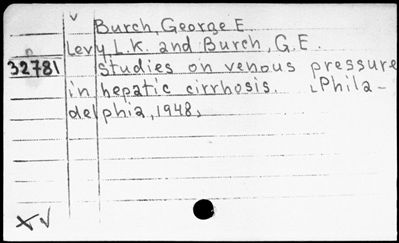 v
Burch, George E.
Levy, L.K. and Burch, G.E.
32781 Studies on venous pressure
in hepatic cirrhosis. [Phila-
delphia, 1948,